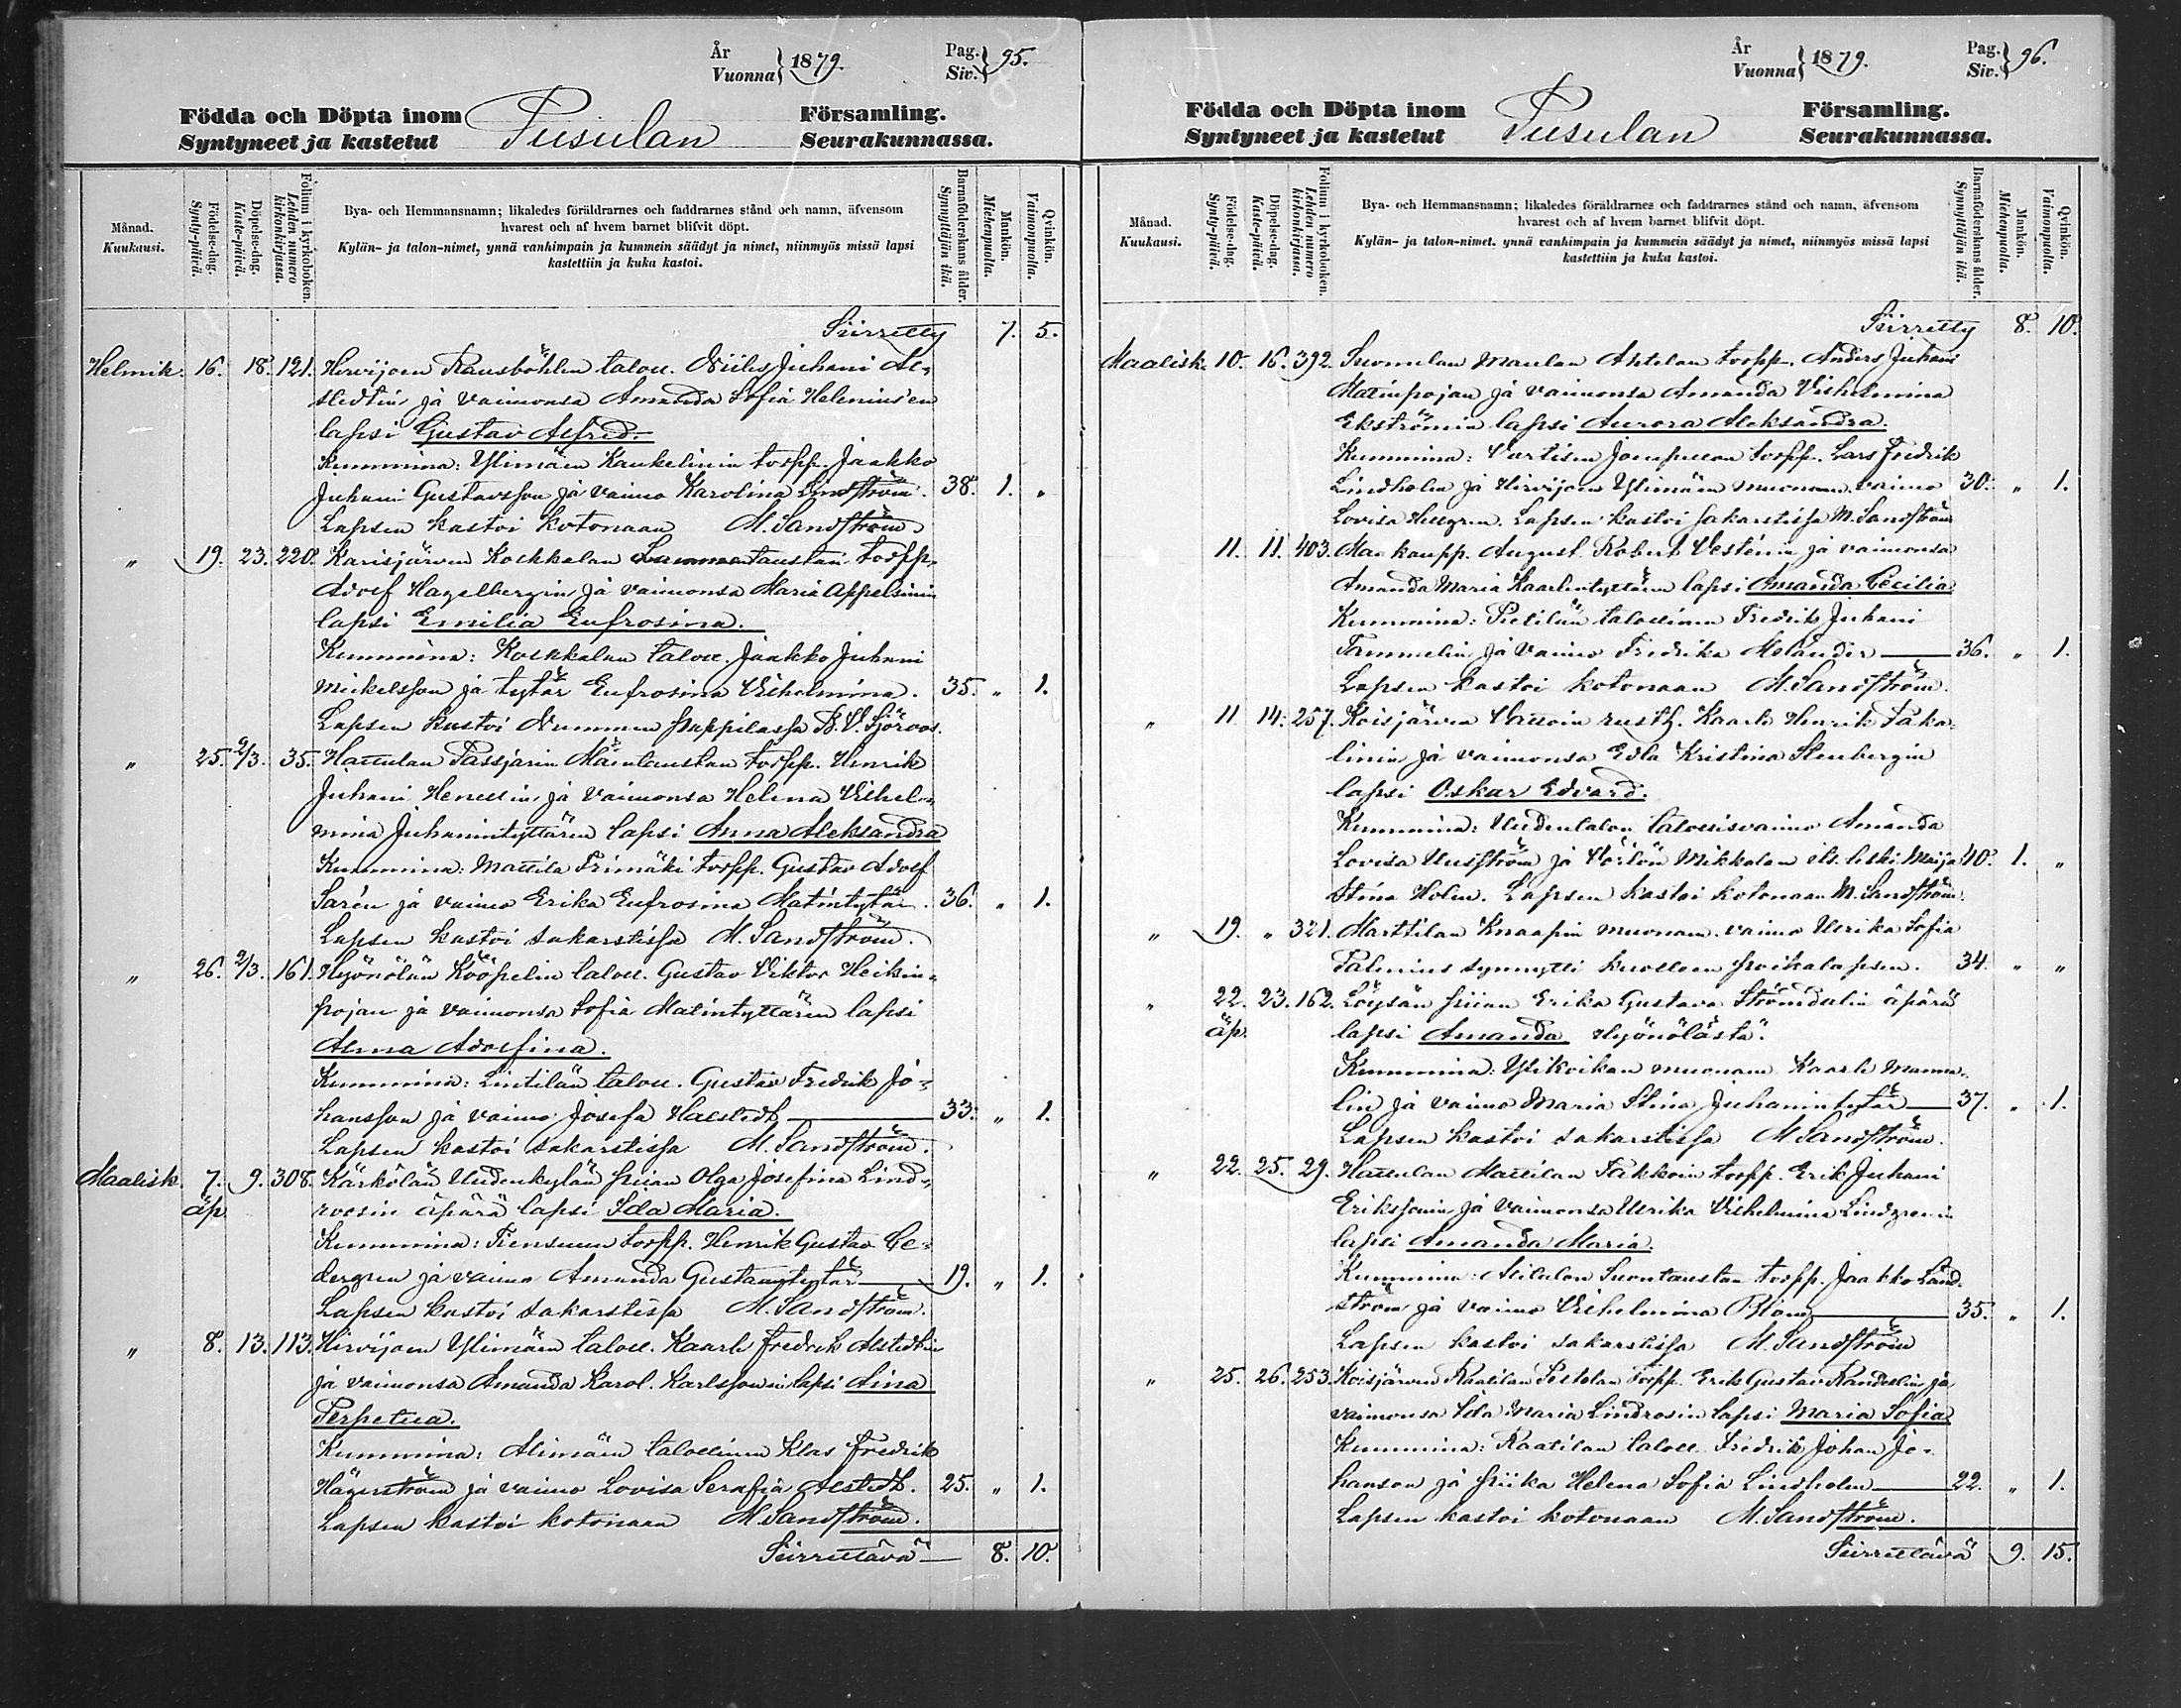 År
Vuonna } 1879.
Pag.
Siv. } 95.
Födda och Döpta inom
Syntyneet ja kastetut
Pusulan
Församling.
Seurakunnassa.
Månad.
Kuukausi.
Födelse-dag.
Synty-päivä.
Döpelse-dag.
Kaste-päivä.
Folium i kyrkoboken.
Lehden numero kirkonkirjassa.
Bya- och Hemmansnamn; likaledes föräldrarnes och faddrarnes stånd och namn, äfvensom
hvarest och af hvem barnet blifvit döpt.
Kylän- ja talon-nimet, ynnä vanhimpain ja kummein säädyt ja nimet, niinmyös missä lapsi
kastettiin ja kuka kastoi.
Barnaföderskans ålder.
Synnyttäjän ikä.
Mankön.
Miehenpuolta.
Qvinkön.
Vaimonpuolta.
Siirretty 7. 5.
Helmik. 16. 18. 121. Hirvijoen Rausböhlen taloll. Niilis Juhani Al-
stedtin ja vaimonsa Amanda Sofia Helenius'en
lapsi Gustav Alfred.
Kummina: Ylimäen Kaukelinin torpp. Jaakko
Juhani Gustavsson ja vaimo Karolina Lindström. 38. 1. "
Lapsen kastoi kotonaan M. Sandström.
" 19. 23. 220. Karisjärven Kockkalan Lammentaustan torpp.
Adolf Hagelbergin ja vaimonsa Maria Appelsinin
lapsi Emilia Eufrosina.
Kummina: Kockkalan taloll. Jaakko Juhani
Mickelsson ja tytär Eufrosina Vilhelmina. 35. " 1.
Lapsen kastoi Nummen pappilassa K. V. Sjöroos.
" 25. 2/3. 35. Hattulan Passjärin Mäentaustan torpp. Henrik
Juhani Henellin ja vaimonsa Helena Vilhel-
mina Juhanintyttären lapsi Anna Aleksandra
Kummina: Mattila Frimäki torpp. Gustav Adolf
Sarén ja vaimo Erika Eufrosina Matintytär. 36. " 1.
Lapsen kastoi sakarstissa M. Sandström.
" 26. 2/3. 161. Hyönölän Kööpelin taloll. Gustav Viktor Heikin-
pojan ja vaimonsa Sofia Matintyttären lapsi
Alma Adolfina.
Kummina: Lintilän taloll. Gustav Fredrik Jo-
hansson ja vaimo Josefa Hallstedt 33. " 1.
Lapsen kastoi sakarstissa M. Sandström.
Maalisk. 7. 9. 308. Kärkölän Uudenkylän piian Olga Josefina Lind-
äp. roosin äpärä lapsi Ida Maria.
Kummina: Tiensuun torpp. Henrik Gustav Ce-
dergren ja vaimo Amanda Gustaantytär 19. " 1.
Lapsen kastoi sakarstissa M. Sandström.
" 8. 13. 113. Hirvijoen Ylimäen taloll. Kaarle Fredrik Alstedtin
ja vaimonsa Amanda Karol. Karlssonin lapsi Aina
Perpetua.
Kummina: Alimäen talollinen Klas Fredrik
Hägerström ja vaimo Lovisa Serafia Alstedt. 25. " 1.
Lapsen kastoi kotonaan M. Sandström.
Siirrettävä 8. 10.
År
Vuonna } 1879.
Pag.
Siv. } 96.
Födda och Döpta inom
Syntyneet ja kastetut
Pusulan
Församling.
Seurakunnassa.
Månad.
Kuukausi.
Födelse-dag.
Synty-päivä.
Döpelse-dag.
Kaste-päivä.
Folium i kyrkoboken.
Lehden numero kirkonkirjassa.
Bya- och Hemmansnamn; likaledes föräldrarnes och faddrarnes stånd och namn, äfvensom
hvarest och af hvem barnet blifvit döpt.
Kylän- ja talon-nimet, ynnä vanhimpain ja kummein säädyt ja nimet, niinmyös missä lapsi
kastettiin ja kuka kastoi.
Barnaföderskans ålder.
Synnyttäjän ikä.
Mankön.
Miehenpuolta.
Qvinkön.
Vaimonpuolta.
Siirretty 8. 10.
Maalisk. 10. 16. 392. Suomelan Maulan Ahtelan torpp. Anders Juhani
Matinpojan ja vaimonsa Amanda Vilhelmina
Ekströmin lapsi Aurora Aleksandra.
Kummina: Vartisen torpp. Lars Fredrik
Lindholm ja Hirvijoen Ylimäen muonam. vaimo 30. " 1.
Lovisa Hellgren. Lapsen kastoi sakarstissa M. Sandström
11. 11. 403. Maakaupp. August Robert Vesténin ja vaimonsa
Amanda Maria Kaarlentyttären lapsi Amanda Cecilia
Kummina: Pielilän talollinen Fredrik Juhani
Tammelin ja vaimo Fredrika Melander 36. " 1.
Lapsen kastoi kotonaan M. Sandström.
" 11. 14. 257. Koisjärven rusth. Kaarle Henrik Paka-
linin ja vaimonsa Edla Kristina Stenbergin
lapsi Oskar Edvard.
Kummina: Uudentalon talollisvaimo Amanda
Lovisa Uusström ja Vörlön Mikkolan its. leski Maija 40. 1. "
Stina Holm. Lapsen kastoi kotonaan M. Sandström.
" 19. " 321. Marttilan Knaapin muonam. vaimo Ulrika Sofia
Palenius synnytti kuolleen poikalapsen. 34. " "
" 22. 23. 162. Löysän piian Erika Gustava Strömdalin äpärä
äp. lapsi Amanda Hyönölästä.
Kummina: Ylikoikan muonam. Kaarle Mamm-
lin ja vaimo Maria Stina Juhanintytär 37. " 1.
Lapsen kastoi sakarstissa M. Sandström.
" 22. 25. 29. Hattulan Mattilan Takkoin torpp. Erik Juhani
Erikssonin ja vaimonsa Ulrika Vilhelmina Lindgrenin
lapsi Amanda Maria.
Kummina: Suontaustan torpp. Jaakko Land-
ström ja vaimo Vilhelmina Blom 35. " 1.
Lapsen kastoi sakarstissa M. Sandström
" 25. 26. 253. Koisjärven Raatilan Pestolan torpp. Erik Gustav Randelin ja
vaimonsa Ida Maria Lindrosin lapsi Maria Sofia
Kummina: Raatilan taloll. Fredrik Johan Jo-
hanson ja piika Helena Sofia Lindholm 22. " 1.
Lapsen kastoi kotonaan M. Sandström.
Siirrettävä 9. 15.